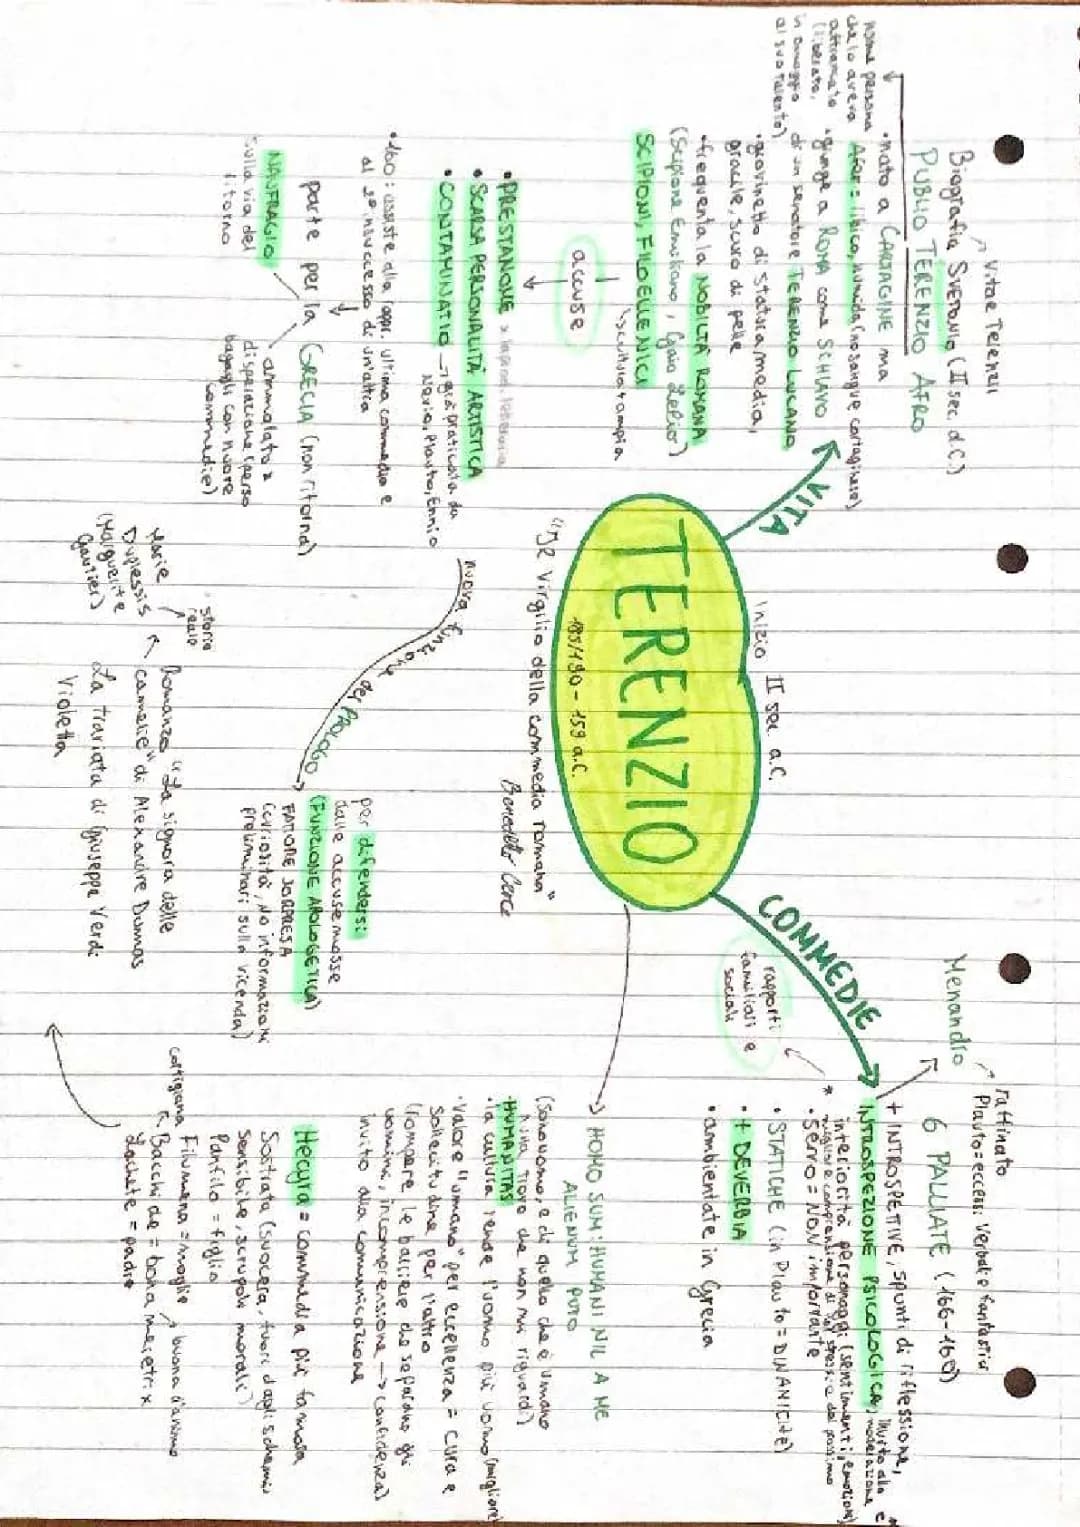 TERENZIO
185/190 - 159 a.C.
Inizio II sec. a.C.
"Il Virgilio della commedia romana"
Benedetto Croce
VITA
Vitae Terentii
Biografia SVETONIO (II sec. d.C.)
PUBLIO TERENZIO AFRO
nome persona
che lo aveva
affrancato
(liberato,
in omaggio
al suo talento)
• nato a CARTAGINE ma
Afer = libico, numida (no sangue cartaginese)
• giunge a ROMA come SCHIAVO
di un senatore TERENZIO LUCANO
• giovinetto di statura media,
gracile, scuro di pelle
• frequenta la NOBILTÀ ROMANA
(Scipione Emiliano, Gaio Lelio)
SCIPIONI, FILOELLENICI
accuse
• PRESTANOME
• SCARSA PERSONALITÀ ARTISTICA
• CONTAMINATIO → già praticata da
Nevio, Plauto, Ennio
• 160: assiste alla rappr. ultima commedia e
al 2° insuccesso di un'altra
parte per la GRECIA (non ritorna)
NAUFRAGIO
sulla via del
ritorno
ammalato x
disperazione (perso
bagagli con nuove
commedie)
nuova funzione del PROLOGO
per difendersi
dalle accuse mosse
(FUNZIONE APOLOGETICA)
FATTORE SORPRESA
(curiosità, NO informazioni
preliminari sulla vicenda)
COMMEDIE
Menandro
raffinato
Plauto = eccessi verbali e fantastici
6 PALLIATE (166-160)
+ INTROSPETTIVE, spunti di riflessione,
INTROSPEZIONE PSICOLOGICA, invito alla
moderazione e
interiorità personaggi (sentimenti, emozioni)
* migliore comprensione di se stessi e del prossimo
• SERVO = NON importante
rapporti
familiari e
sociali
• STATICHE (in Plauto = DINAMICHE)
• + DEVERBIA
• ambientate in Grecia
HOMO SUM: HUMANI NIL A ME
ALIENUM PUTO
(Sono uomo e di quello che è umano
nulla trovo che non mi riguardi)
• HUMANITAS
• la cultura rende l'uomo più uomo (migliore)
• Valore "umano" per eccellenza = cura e
sollecitudine per l'altro
(rompere le barriere che separano gli
uomini, incomprensione → confidenza)
invito alla comunicazione
Hecyra = commedia più famosa
Sostrata (suocera, fuori dagli schemi
sensibile, scrupoli morali)
Panfilo = figlio
Filumena = moglie
buona d'animo
cortigiana
Bacchide = bona meretrix
Lachete = padre
Romanzo "La signora delle
camelie" di Alexandre Dumas
La traviata di Giuseppe Verdi
Violetta
storia
reale
Marie
Duplessis
(Marguerite
Gautier)